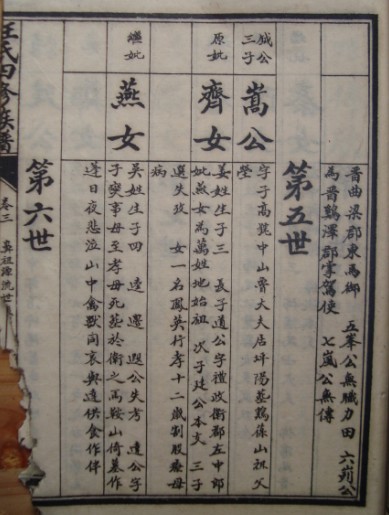 晋曲梁郡東馬卿　五峯公無職力田　六蒴公
馬晋鷄澤郡掌駕使　七嵐公無傳
第五世
公三子
嵩公
字子高號中山魯大夫居坪陽葬鷄篠山祖父
塋
原妣
齊女
姜姓生子三　長子道公字禮政衛郡左中郎
妣燕女為萬姓地始祖　次子廷公本支　三子
選失攷　女一名鳳英行孝十二歲割股療母
病
繼妣
燕女
吳姓生子四　逵　遷　遐公失考　達公字
子爕事母至孝母死葬於衛之馬鞍山倚墓作
蓬日夜悲泣山中禽獸同哀與逵供食作伴
第六世
汪氏四修族譜
卷三
鼻祖源流世